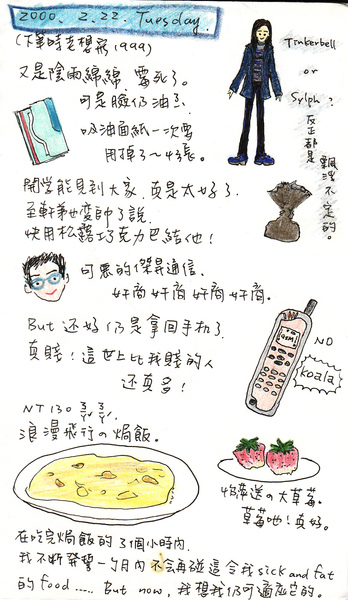 2000. 2. 22. Tuesday.
(下筆時老想飛 1999)
Tinkerbell
or
Sylph?
反正都是
飄浮不定的。
又是陰雨綿綿, 霉死了。
可是臉仍油の
吸油面紙一次要
用掉了~4張。
開學能見到大家, 真是太好了.
至軒弟也變帥了說.
快用松露巧克力巴結他!
可惡的傑昇通信.
奸商奸商奸商奸商。
But 还好仍是拿回手机了.
真賤!這世上比我賤的人
还真多!
NO
koala
NT130
浪漫飛行の焗飯。
送の大草莓。
草莓吔!真好。
在吃完焗飯的3個小時內,
我不断發誓一个月內不会再碰這令我sick and fat
的food ..... But now, 我想我仍可適応它的。